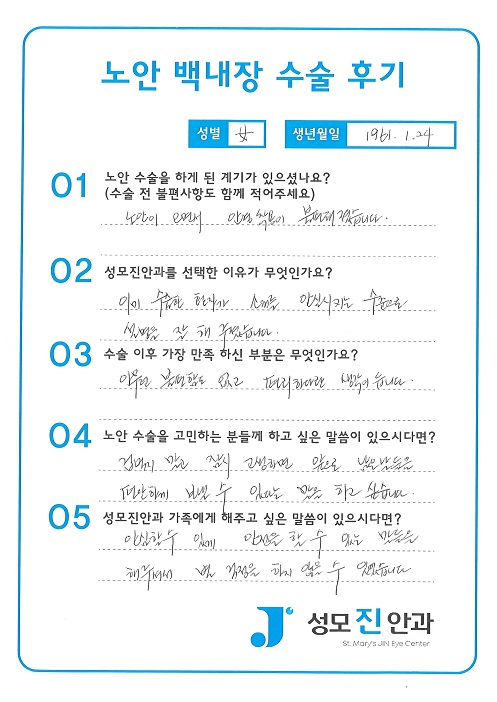 노안 백내장 수술 후기
성별 女 생년월일 1961. 1. 24
01 노안 수술을 하게 된 계기가 있으셨나요?
(수술 전 불편사항도 함께 적어주세요)
노안이 오면서 안경 착용이 불편해졌습니다.
02 성모진안과를 선택한 이유가 무엇인가요?
이미 수술한 환자가 소개를 안심시키는 수준으로
설명을 잘 해 주었습니다.
03 수술 이후 가장 만족 하신 부분은 무엇인가요?
아무런 불편함도 없고 편리하다란 생각이 듭니다.
04 노안 수술을 고민하는 분들께 하고 싶은 말씀이 있으시다면?
겁먹지 말고 잠시 고생하면 앞으로 남은날들을
편안하게 보낼 수 있다는 말을 하고 싶습니다.
05 성모진안과 가족에게 해주고 싶은 말씀이 있으시다면?
안심할수 있게 안전을 할 수 있는 말들을
해주셔서 별 걱정을 하지 않을 수 있었습니다
성모진안과
St. Mary's JIN Eye Center